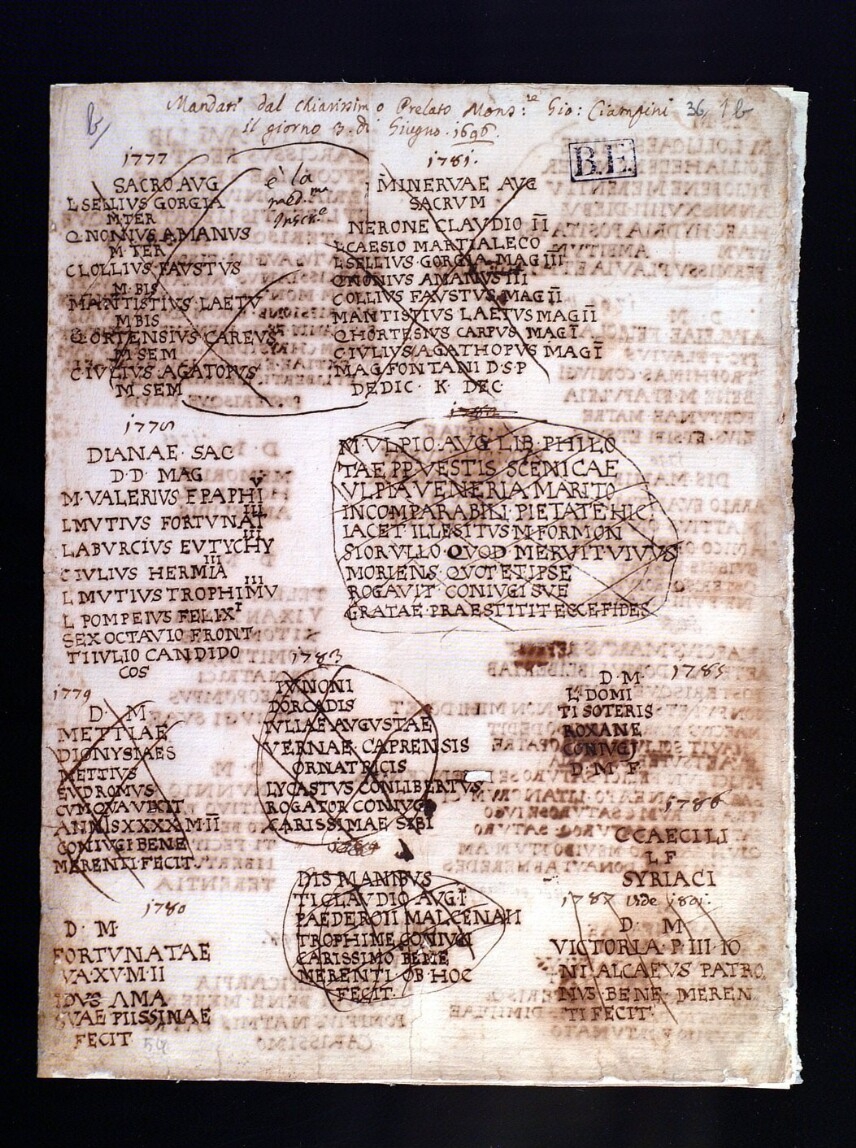 Mandati dal chiarissimo Prelato Mons:re Gio: Ciampini 36, 1 b
Il giorno 3. di Giugno. 1696.
B.E.
1777
SACRO AVG
L SELLIVS GORGIA
M TER
Q NONIVS AMANVS
M TER
C LOLLIVS FAVSTVS
M BIS
M ANTISTIVS LAETV
M BIS
Q ORTENSIVS CAREVS
M SEM
C IVLIVS AGATOPVS
M SEM
è la
med.ma
Inscr.e
1781.
MINERVAE AVG
SACRVM
NERONE CLAVDIO II
L CAESIO MARTIALE CO
L SELLIVS GORGIA MAG III
Q NONIVS AMANVS III
C OLLIVS FAVSTVS MAG II
M ANTISTIVS LAETVS MAG II
Q HORTESIVS CARPVS MAG I
C IVLIVS AGATHOPVS MAG I
MAG FONTANI D S P
DEDIC K DEC
DIANAE SAC
D D MAG
M VALERIVS EPAPHI V
L MVTIVS FORTVNAT III
L ABVRCIVS EVTYCHY III
C IVLIVS HERMIA III
L MVTIVS TROPHIMV III
L POMPEIVS FELIX I
SEX OCTAVIO FRONT
TI IVLIO CANDIDO
COS
M VLPIO AVG LIB PHILO
TAE PP VESTIS SCENICAE
VLPIA VENERIA MARITO
INCOMPARABILI PIETATE HIC
IACET ILLE SITVS M FORMON
SIOR VLLO QVOD MERVIT VIVVS
MORIENS QVOT ET IPSE
ROGAVIT CONIVGI SVE
GRATAE PRAESTITIT ECCE FIDES
1779
D M
METTIAE
DIONYSIAES
METTIVS
EVDROMVS
CVM QVA VIXIT
ANNIS XXXX M II
CONIVGI BENE
MERENTI FECIT
1783
IVNONI
DORCADIS
IVLIAE AVGVSTAE
VERNAE CAPRENSIS
ORNATRICIS
LYCASTVS CONLIBERTVS
ROGATOR CONIVGI
CARISSIMAE SIBI
1785
D M
L DOMI
TI SOTERIS
ROXANE
CONIVGI
D M F
1786
C CAECILI
L F
SYRIACI
1780
D M
FORTVNATAE
VA XV M II
IDVS AMA
SVAE PIISSINAE
FECIT
54
1784
DIS MANIBVS
TI CLAVDIO AVG I
PAEDEROTI MALCENAH
TROPHIME CONIVGI
CARISSIMO BENE
MERENTI OB HOC
FECIT
1787 vide 1801.
D M
VICTORIA P III IO
NI ALCAEVS PATRO
NVS BENE MEREN
TI FECIT